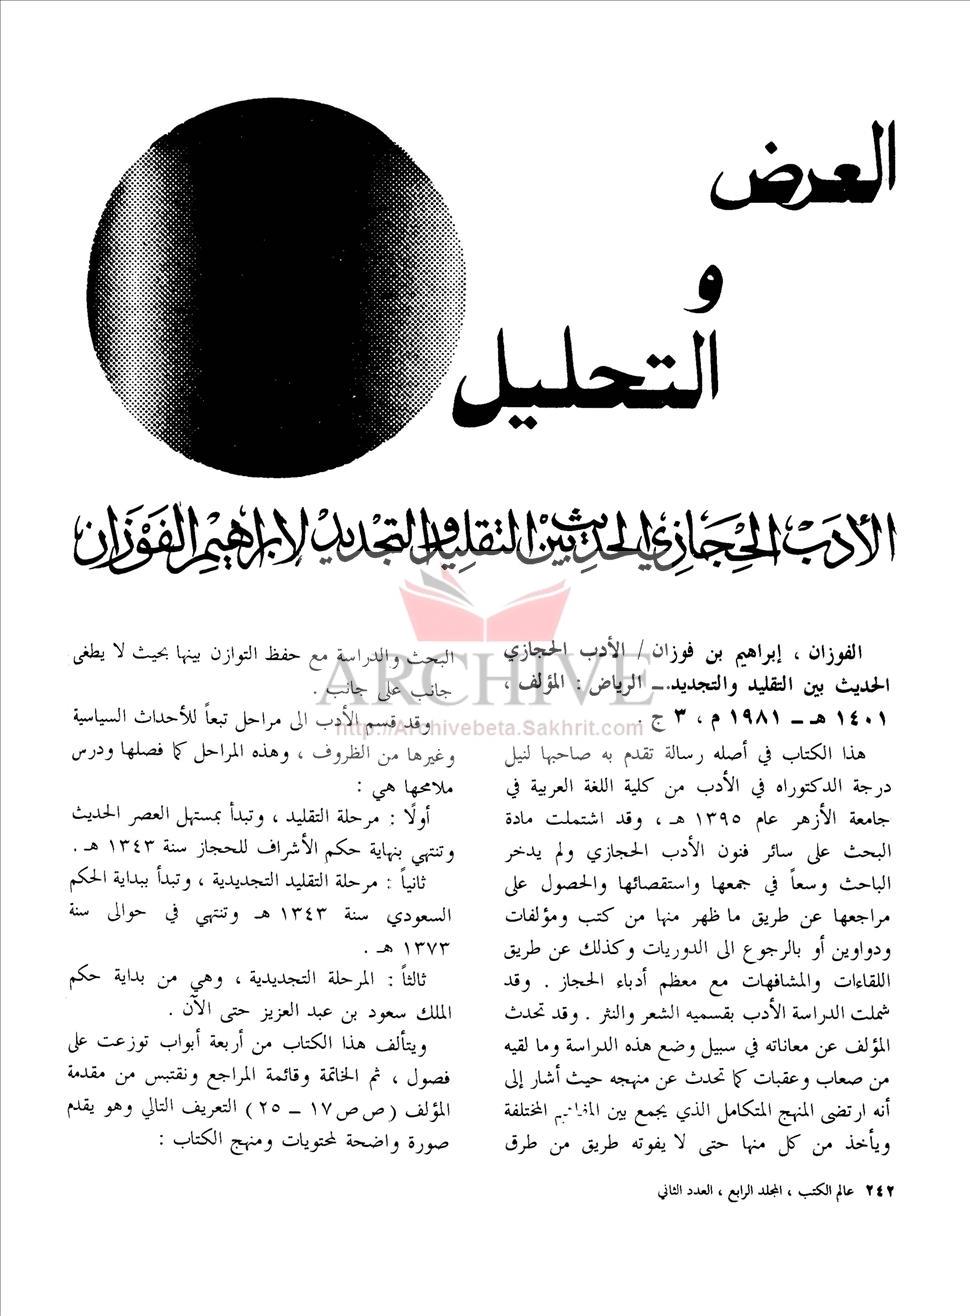 العرض
و
التحليل
الأدَب الحِجَازي الحَديث بَين التقليد والتجديد لإبراهيم الفَوْزان
الفوزان ، إبراهيم بن فوزان / الأدب الحجازي
الحديث بين التقليد والتجديد. ــ الرياض : المؤلف ،
١٤٠١ هـ ــ ١٩٨١ م ، ٣ ج .
هذا الكتاب في أصله رسالة تقدم به صاحبها لنيل
درجة الدكتوراه في الأدب من كلية اللغة العربية في
جامعة الأزهر عام ١٣٩٥ هـ ، وقد اشتملت مادة
البحث على سائر فنون الأدب الحجازي ولم يدخر
الباحث وسعاً في جمعها واستقصائها والحصول على
مراجعها عن طريق ما ظهر منها من كتب ومؤلفات
ودواوين أو بالرجوع الى الدوريات وكذلك عن طريق
اللقاءات والمشافهات مع معظم أدباء الحجاز . وقد
شملت الدراسة الأدب بقسميه الشعر والنثر . وقد تحدث
المؤلف عن معاناته في سبيل وضع هذه الدراسة وما لقيه
من صعاب وعقبات كما تحدث عن منهجه حيث أشار إلى
أنه ارتضى المنهج المتكامل الذي يجمع بين المفاهيم المختلفة
ويأخذ من كل منها حتى لا يفوته طريق من طرق
البحث والدراسة مع حفظ التوازن بينها بحيث لا يطغى
جانب على جانب .
وقد قسم الأدب الى مراحل تبعاً للأحداث السياسية
وغيرها من الظروف ، وهذه المراحل كما فصلها ودرس
ملامحها هي :
أولًا : مرحلة التقليد ، وتبدأ بمستهل العصر الحديث
وتنتهي بنهاية حكم الأشراف للحجاز سنة ١٣٤٣ هـ .
ثانياً : مرحلة التقليد التجديدية ، وتبدأ ببداية الحكم
السعودي سنة ١٣٤٣ هـ وتنتهي في حوالى سنة
١٣٧٣ هـ .
ثالثاً : المرحلة التجديدية ، وهي من بداية حكم
الملك سعود بن عبد العزيز حتى الآن .
ويتألف هذا الكتاب من أربعة أبواب توزعت على
فصول ، ثم الخاتمة وقائمة المراجع ونقتبس من مقدمة
المؤلف ( ص ص ١٧ ــ ٢٥ ) التعريف التالي وهو يقدم
صورة واضحة لمحتويات ومنهج الكتاب :
ARCHIVE
http://Archivebeta.Sakhrit.com
٢٤٢ عالم الكتب ، المجلد الرابع ، العدد الثاني